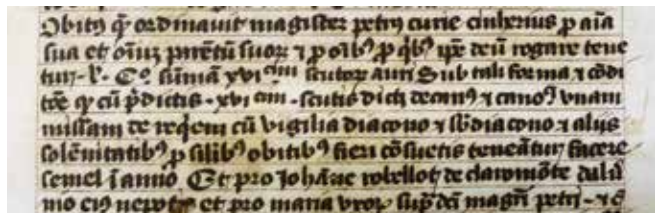 Obitꝰ q̄ ordinavit magister petrꝰ curie cinherius ꝓ aīa
sua et oīuꝫ parētū suoꝝ ⁊ ꝓ oībꝰ ꝓ q̄bꝰ ip̄e deū rogare tene
tur · Sūmā xvi scutoꝝ auri Sub tali forma ⁊ cōdi
tōe ꝙ cū p̄dictis · xvi · scutis dicti decanꝰ ⁊ canoꝰ unam
missam de reqͥem cū vigilia diacono ⁊ sbdiacono ⁊ alijs
solēnitatibꝰ ꝓ silibꝰ obitibꝰ fieri cōsuetis teneātur facere
semel ī anno Et pro Johāne rolellot de claromōte
mo eiꝰ nepote et pro maria uxor magrī petri · ⁊